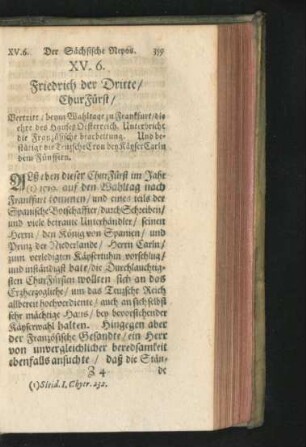 XV.6. Der Sächsische Nepos. 359
XV. 6.
Friedrich der Dritte/
ChurFürst/
Vertritt/ beym Wahltage zu Frankfurt/ die
ehre des Hauses Oesterreich. Unterbricht
die Französische bearbeitung. Und be-
stätigt die Teutsche Cron dem Käyser Carln
dem Fünften.
ALß eben dieser ChurFürst im Jahr
(1) 1519. auf den Wahltag nach
Frankfurt kommen/ und eines teils der
Spanische Botschaffter/ durch Schreiben/
und viele betraute Unterhändler/ seinen
Herrn/ den König von Spanien/ und
Prinz der Niederlande/ Herrn Carln/
zum verledigten Käysertuhm vorschlug/
und inständigst baht/ die Durchlauchtig-
sten ChurFürsten wollten sich an das
Erzherzogliche/ um das Teutsche Reich
allbereit hochverdiente/ auch an sich selbst
sehr mächtige Haus/ bey bevorstehender
Käyserwahl halten. Hingegen aber
der Französische Gesandte/ ein Herr
von unvergleichlicher beredsamkeit
ebenfalls ansuchte/ daß die Stän-
Z 4 de
(1) Sleid. I. Chytr. 232.